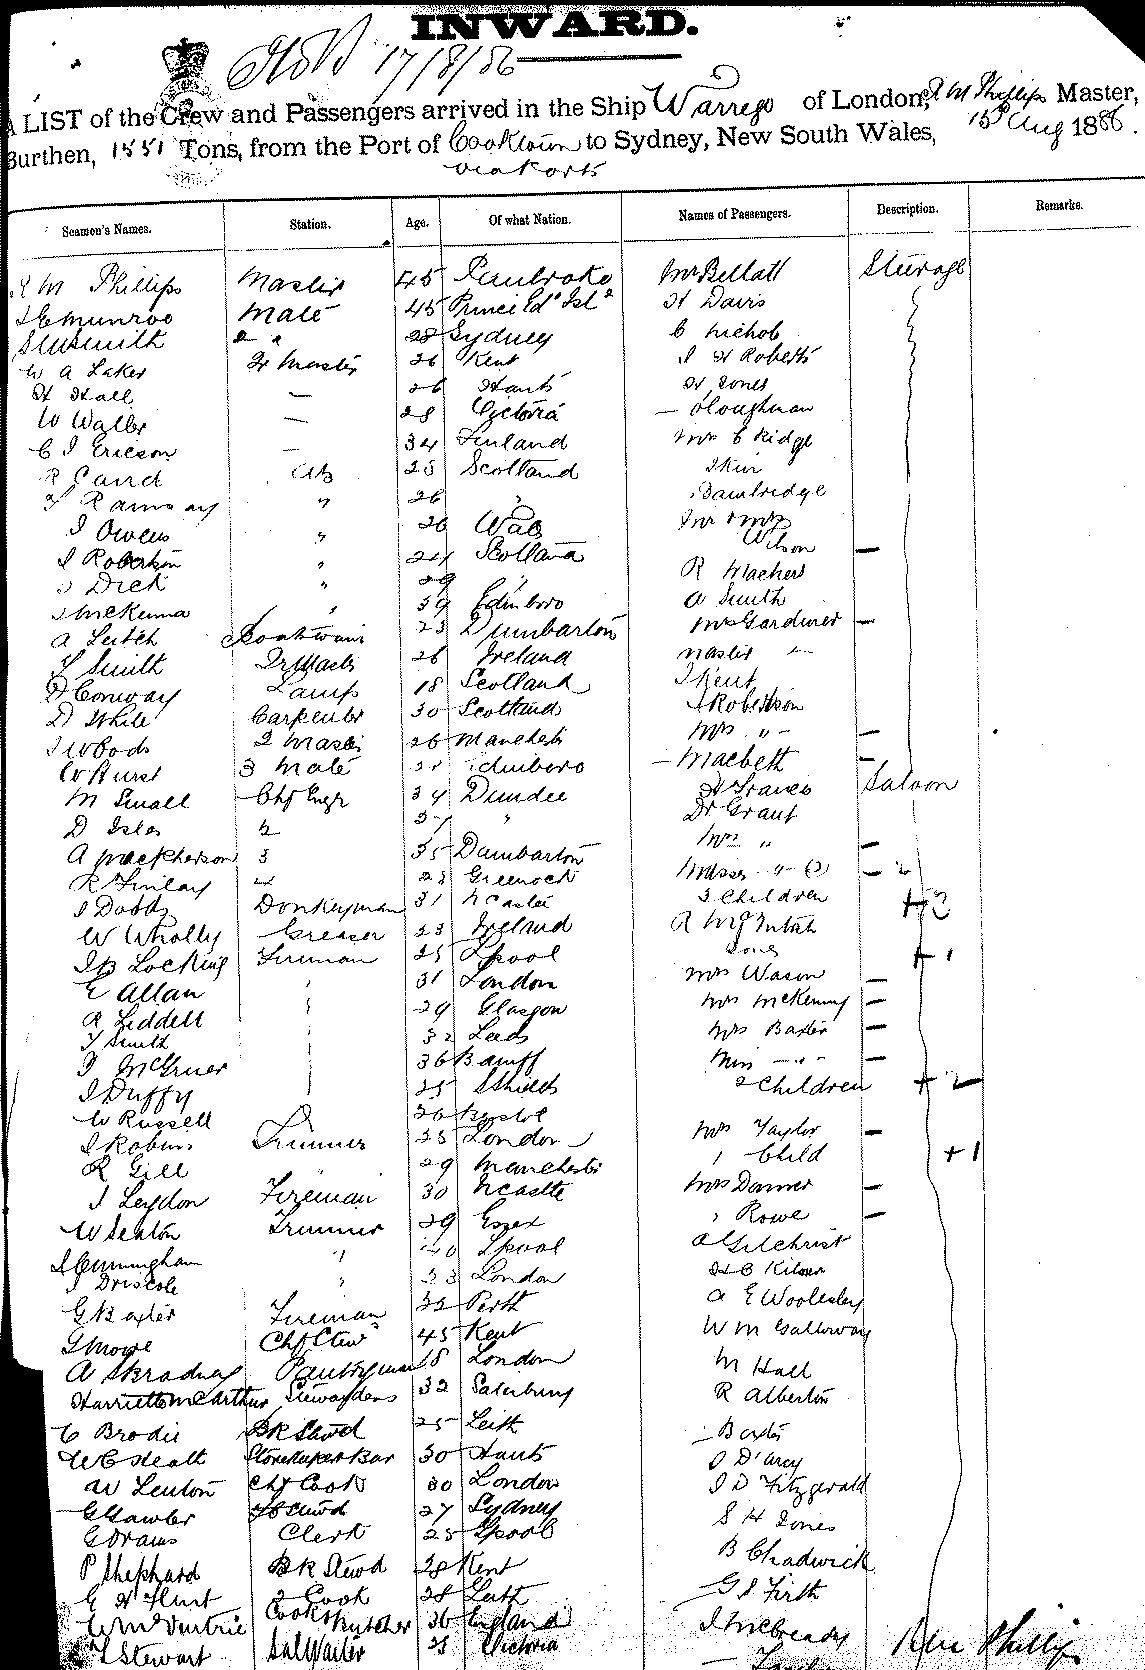 INWARD.
17/8/86
A LIST of the Crew and Passengers arrived in the Ship Warrego of London, R M Phillips Master,
Burthen, 1551 Tons, from the Port of Cooktown to Sydney, New South Wales, 15 Aug 1886.
via Ports
Seamen's Names. Station. Age. Of what Nation. Names of Passengers. Description. Remarks.
R M Phillips Master 45 Pembroke Mr Bellatt Steerage
Munroe Mate 45 Prince Ed Isl H Davis
Smith " " 28 Sydney C Nichols
W A Laker Qr Master 26 Kent J H Roberts
H Hall — 26 Hants H Jones
W Waller — 28 Victoria — OLoughman
C J Ericson — 34 Finland Mrs C Ridge
R Cand AB 25 Scotland
Ramsay " 26 " Bambridge
J Owens " 26 Wales Mr & Mrs
Wilson —
J Robertson " 24 Scotland
Dick " 29 " R Machers
McKenna " 39 Edinboro A Smith
A Leitch Boatswain 23 Dumbarton Mrs Gardiner —
Smith Qr Master 26 Ireland Master "
Conway Lamps 18 Scotland J Kent
D White Carpenter 30 Scotland J Robertson
J Woods 2 Mate 26 Manchester Mrs " —
W Hurst 3 Mate Edinboro — Macbeth —
M Small Chf Engr 34 Dundee Travers Saloon
D Isles 2 " Dr Grant
A Mackpherson 3 35 Dumbarton Mrs " —
R Finlay 4 28 Greenock Misses " (2) — 2
J Dodds Donkeyman 31 Ncastle 3 Children +3
W Wholly Greaser 23 Ireland R McIntosh
J B Locking Fireman 25 Lpool +1
E Allan " 31 London Mrs Wason —
R Liddell 29 Glasgow Mrs McKenny —
Smith 32 Leeds Mrs Baxter —
McGruer 36 Banff Miss " —
J Duffy 25 S Shields 2 Children +2
W Russell 26 Bristol
J Robins Trimmer 25 London Mrs Taylor —
R Gill " 29 Manchester 1 Child +1
J Leydon Fireman 30 Ncastle Mrs Danner —
W Seaton Trimmer 29 Essex " Rowe —
J Cunningham " 40 Lpool A Gilchrist
J Driscole " 33 London Kilner
G Baxter Fireman 32 Perth A E Woolesley
G Mowe Chf Stew 45 Kent W M Galloway
A Skradney Pantryman 18 London M Hall
Harriett McArthur Stewardess 32 Salisbury R Alberton
C Brodie BR Stwd 25 Leith — Baxter
W C Heath Storekeeper Bar 30 Hants J D'arcy
W Lenton Chf Cook 30 London J D Fitzgerald
G Gawler Stwd 27 Sydney S H Jones
G Draws Clerk 25 Lpool B Chadwick
P Shephard BR Stewd 28 Kent
E H Flint 2 Cook 28 Leith G S Firth
Cooks Butcher 36 England J McCready
Stewart Sal Waiter 25 Victoria
Phillips